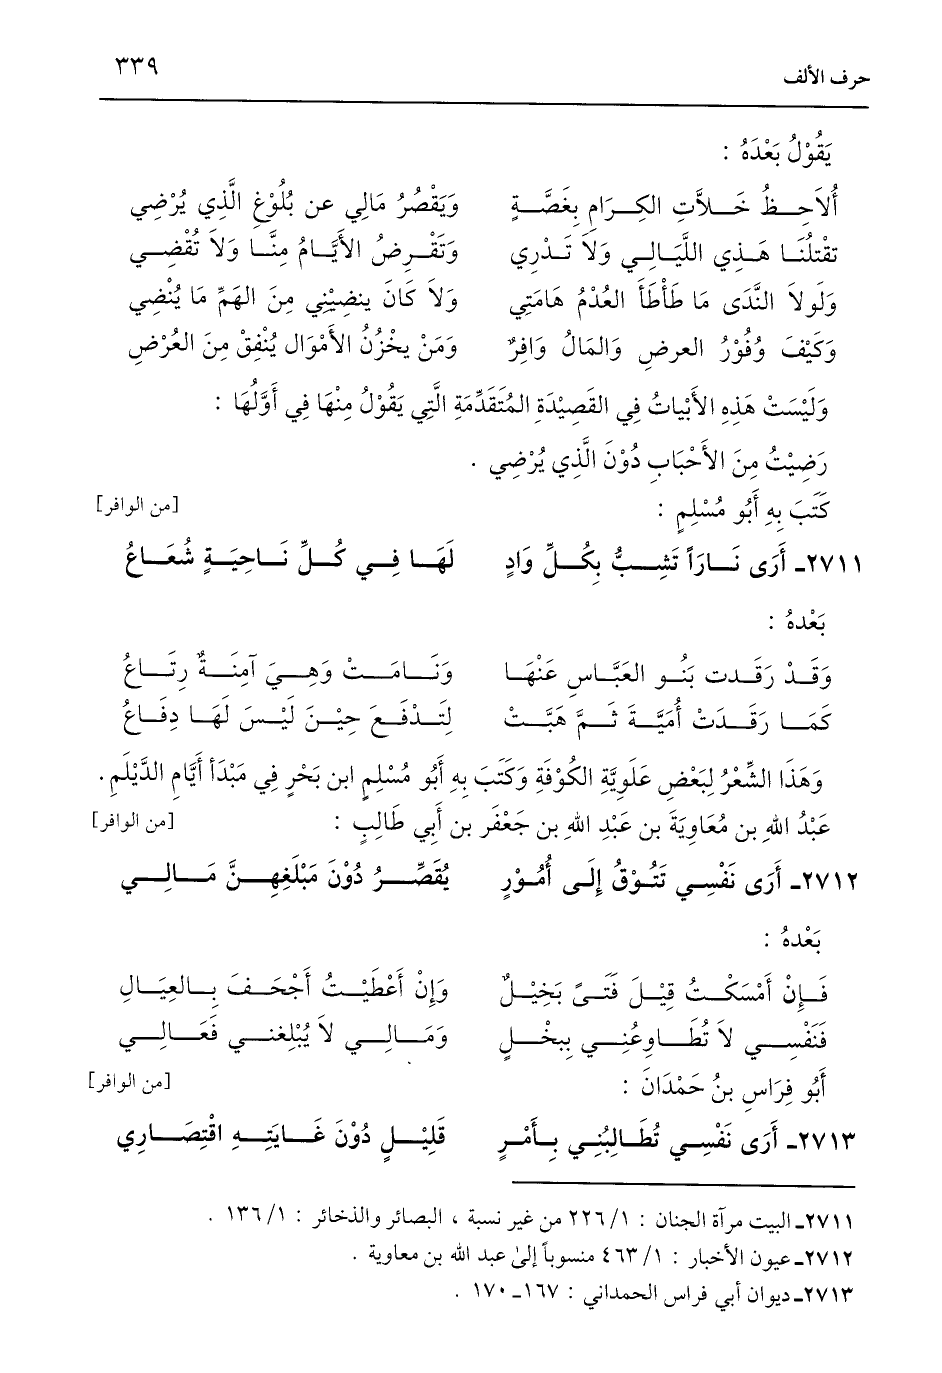 حرف الألف ٣٣٩
يَقُوْلُ بَعْدَهُ :
أُلاَحِظُ خَلاَّتِ الكِرَامِ بِغَصَّةٍ وَيَقْصُرُ مَالِي عن بُلُوْغِ الَّذِي يُرْضِي
تقْتلُنَا هَذِي اللَّيَالِي وَلاَ تَدْرِي وَتَقْرِضُ الأَيَّامُ مِنَّا وَلاَ تُقْضِي
وَلَولاَ النَّدَى مَا طَأْطَأَ العُدْمُ هَامَتِي وَلاَ كَانَ ينضِيْنِي مِنَ الهَمِّ مَا يُنْضِي
وَكَيْفَ وُفُوْرُ العرضِ وَالمَالُ وَافِرٌ وَمَنْ يخْزُنُ الأَمْوَال يُنْفِقْ مِنَ العُرْضِ
وَلَيسَتْ هَذِهِ الأَبْيَاتُ فِي القَصِيْدَةِ المُتَقَدِّمَةِ الَّتِي يَقُوْلُ مِنْهَا فِي أَوَّلُهَا :
رَضِيْتُ مِنَ الأَحْبَابِ دُوْنَ الَّذِي يُرْضِي .
كَتَبَ بِهِ أَبُو مُسْلِمٍ : [من الوافر]
٢٧١١ـ أَرَى نَارَاً تَشِبُّ بِكُلِّ وَادٍ لَهَا فِي كُلِّ نَاحِيَةٍ شُعَاعُ
بَعْدهُ :
وَقَدْ رَقَدت بَنُو العَبَّاسِ عَنْهَا وَنَامَتْ وَهِيَ آمِنَةٌ رِتَاعُ
كَمَا رَقَدَتْ أُمَيَّةَ ثُمَّ هَبَّتْ لِتَدْفَعَ حِيْنَ لَيْسَ لَهَا دِفَاعُ
وَهَذَا الشِّعْرُ لِبَعْضِ عَلَوِيَّةِ الكُوْفَةِ وَكَتَبَ بِهِ أَبُو مُسْلِمٍ ابن بَحْرٍ فِي مَبْدَأ أَيَّامِ الدَّيْلَمِ .
عَبْدُ اللهِ بن مُعَاوِيَةَ بن عَبْدِ اللهِ بن جَعْفَر بن أَبِي طَالِبٍ : [من الوافر]
٢٧١٢ـ أَرَى نَفْسِي تَتُوْقُ إِلَى أُمُوْرٍ يُقَصِّرُ دُوْنَ مَبْلَغِهِنَّ مَالِي
بَعْدهُ :
فَإِنْ أَمْسَكْتُ قِيْلَ فَتَىً بَخِيْلٌ وَإِنْ أَعْطَيْتُ أَجْحَفَ بِالعِيَالِ
فَنَفْسِي لاَ تُطَاوِعُنِي بِبخْلٍ وَمَالِي لاَ يُبْلِغني فَعَالِي
أَبُو فِرَاسِ بنُ حَمْدَانَ : [من الوافر]
٢٧١٣ـ أَرَى نَفْسِي تُطَالِبُنِي بِأَمْرٍ قَلِيْلٍ دُوْنَ غَايَتِهِ اقْتِصَارِي
٢٧١١ـ البيت مرآة الجنان : ١/ ٢٢٦ من غير نسبة ، البصائر والذخائر : ١/ ١٣٦ .
٢٧١٢ـ عيون الأخبار : ١/ ٤٦٣ منسوباً إلىٰ عبد الله بن معاوية .
٢٧١٣ـ ديوان أبي فراس الحمداني : ١٦٧ـ ١٧٠ .